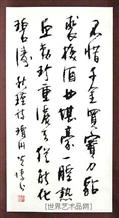 不惜千金買寶刀貂
裘換酒也堪豪一腔熱
血勤珍重灑去猶能化
碧濤 秋瑾詩
[世界艺术品网]